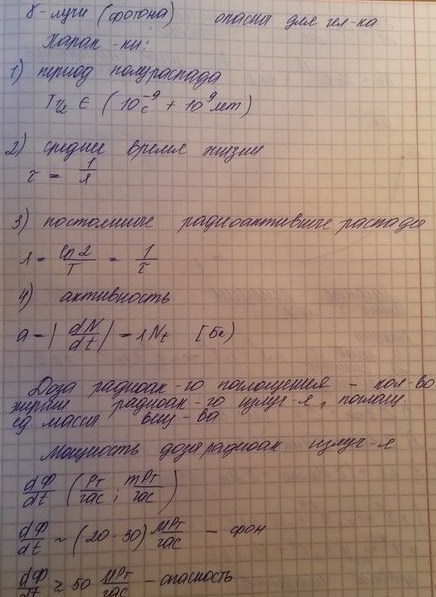 γ-лучи (фотона) опасны для чел-ка
Харак-ки:
1) период полураспада
T½ ∈ (10⁻⁹ с ÷ 10⁹ лет)
2) среднее время жизни
τ = 1/λ
3) постоянные радиоактивные распада
λ = ln 2/T = 1/τ
4) активность
a = |dN/dt| = λNt [Бк]
Доза радиоак-го поглощения – кол-во
энергии радиоак-го излуч-я, поглащ
ед массы вещ-ва
Мощность дозы радиоак излуч-я
dФ/dt (Рт/час; mРт/час)
dФ/dt ~ (20-30) МРт/час – фон
dФ/dt ≥ 50 МРт/час – опасность